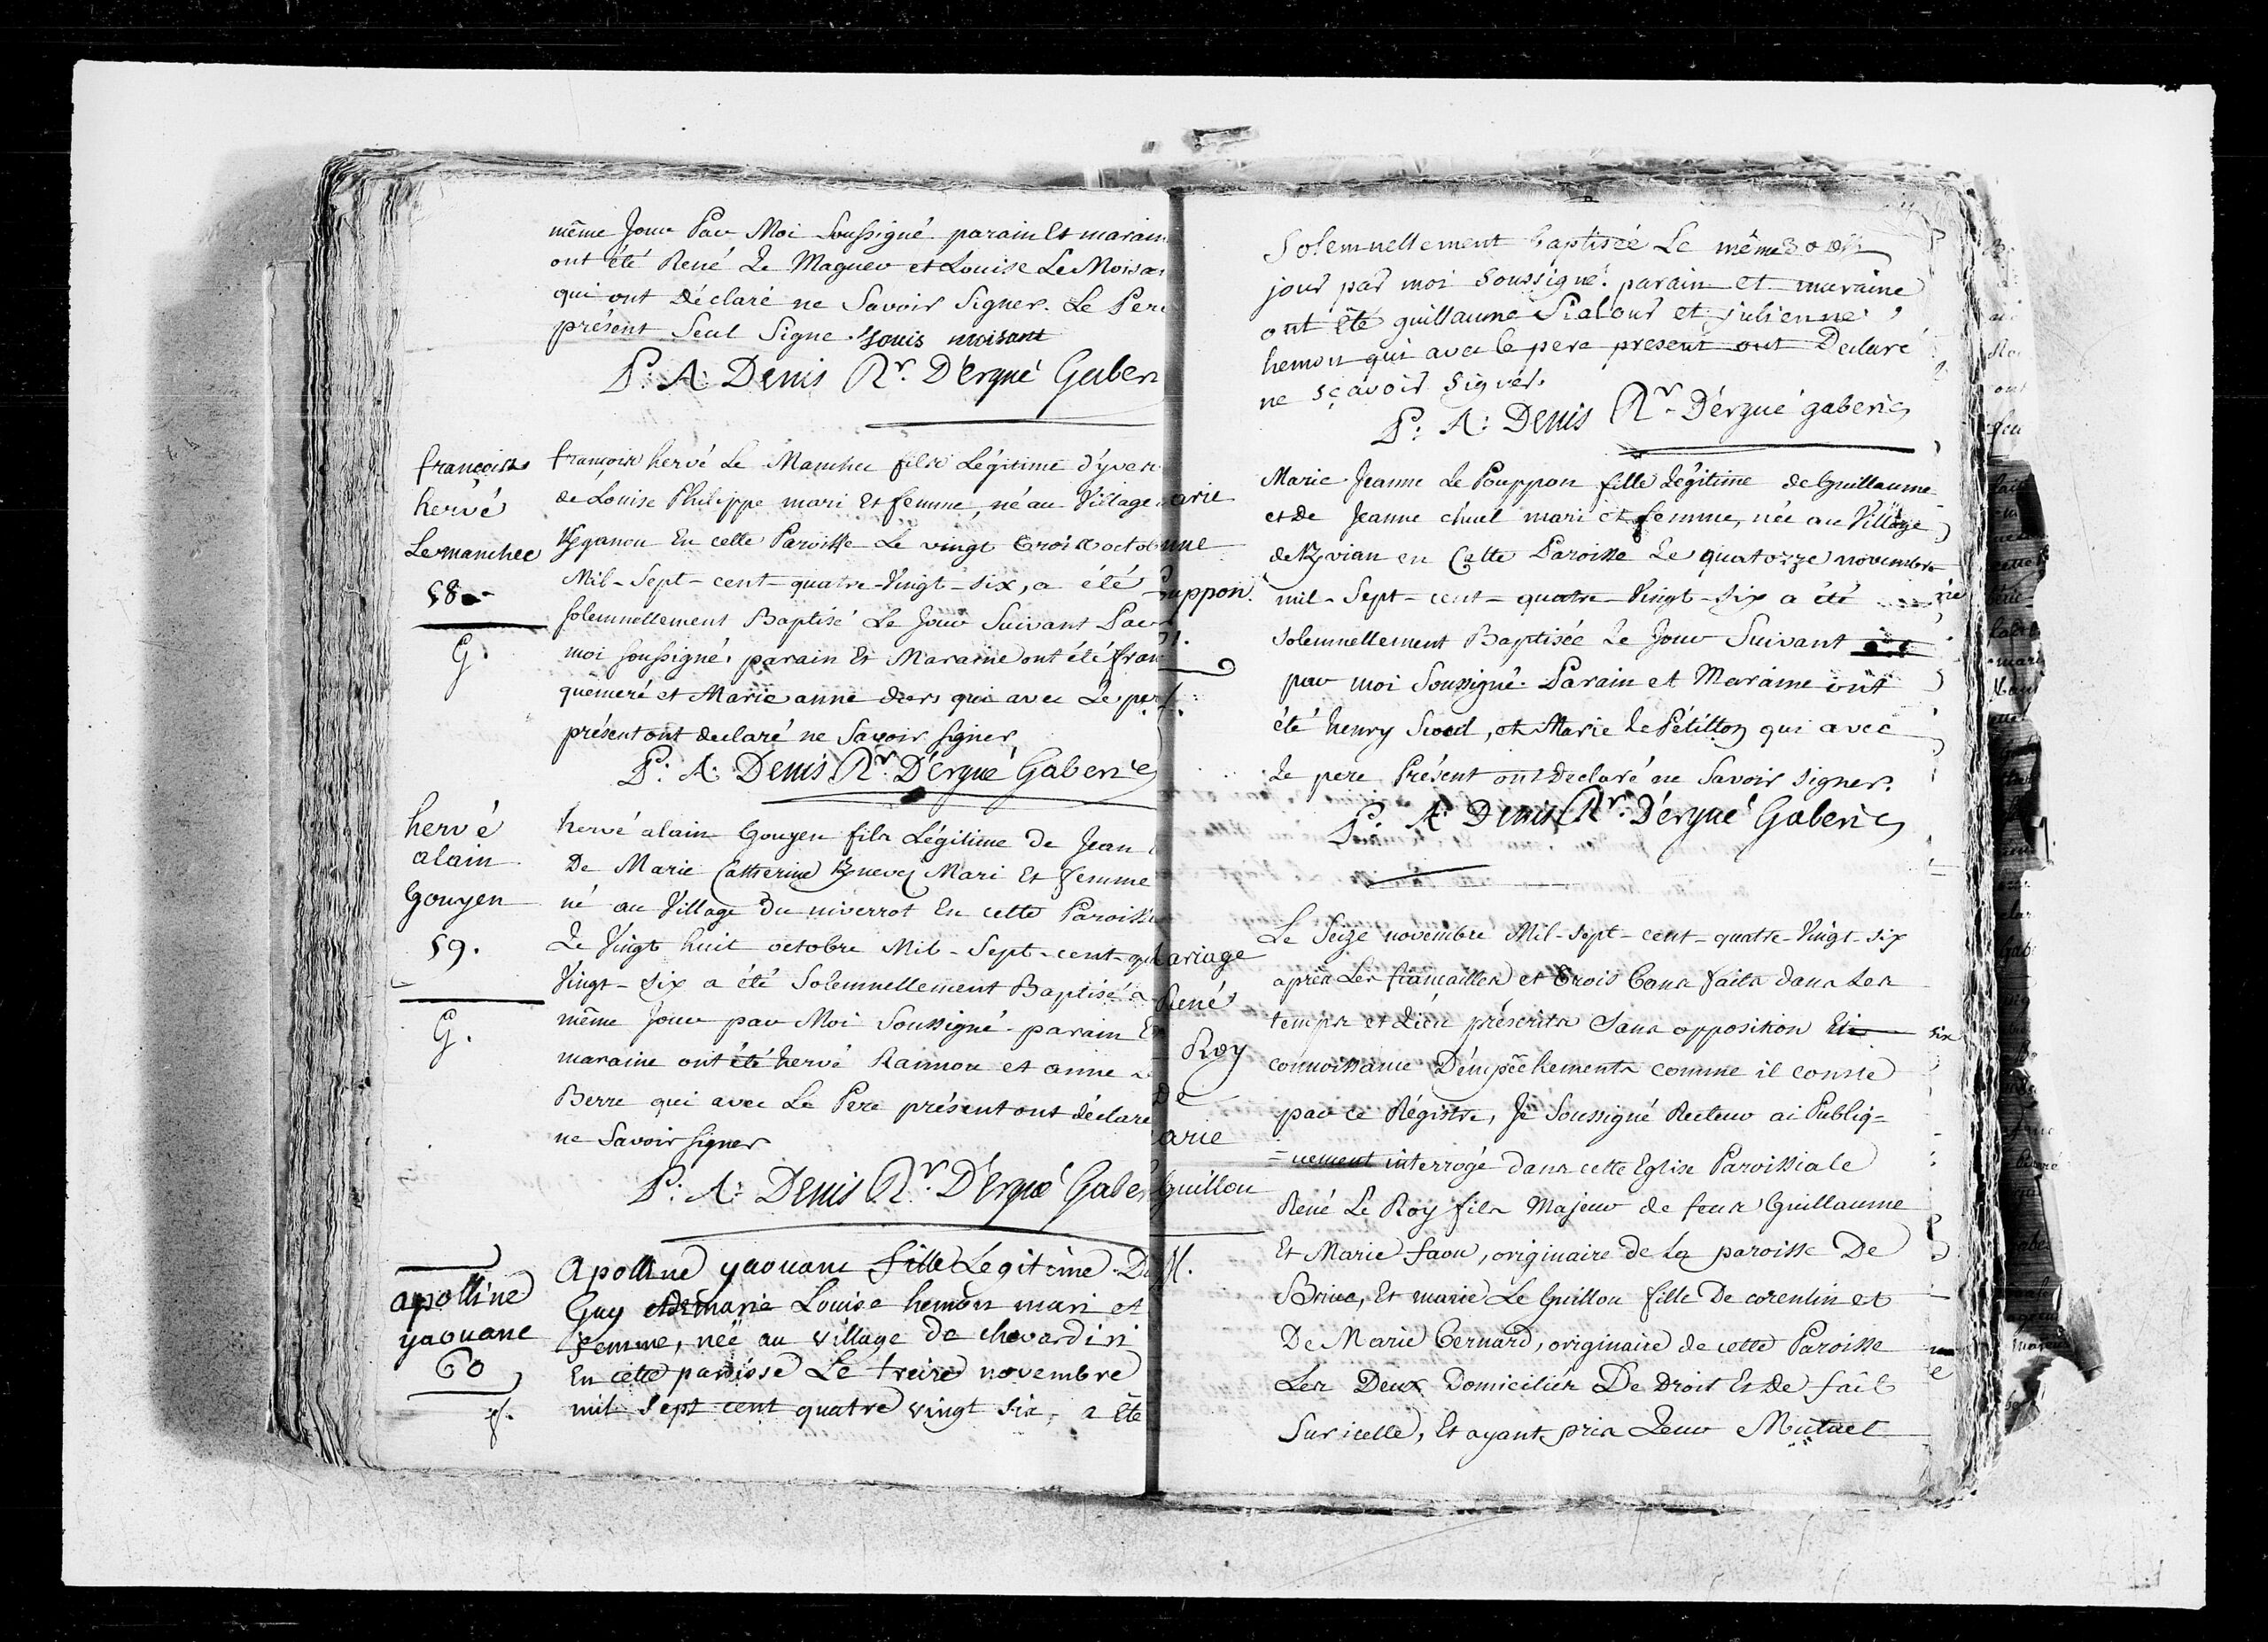 même Jour Par Moi Soussigné. parain Et marain
ont été René Le Magueur et Louise Le Moisan
qui ont Déclaré ne Savoir Signer. Le Pere
présent Seul Signe. Louis moisant
P: A: Denis Rr. D'Ergué Gaberi
françois
hervé
Le manchec
58.
G.
françois hervé Le Manchec fils Légitime d'yves
de Louise Philippe mari Et femme, né au Village
En cette Paroisse Le vingt trois octob
Mil-Sept-cent-quatre-Vingt-six, a été
solemnellement Baptisé Le Jour Suivant Par
moi soussigné. parain Et Maraine ont été fran
quemeré et Marie anne qui avec Le per
présent ont declaré ne Savoir signer
P: A: Denis Rr. D'Ergué Gaberic
hervé
alain
Gouyen
59.
G.
hervé alain Gouyen fils Légitime de Jean
De Marie Catherine Mari Et femme
né au Village Du niverrot En cette Paroisse
Le Vingt huit octobre Mil-Sept-cent-qu
Vingt-six a été Solemnellement Baptisé
même Jour par Moi Soussigné. parain Et
maraine ont été hervé Rannou et anne L
Berre qui avec Le Pere présent ont déclaré
ne Savoir signer
P: A: Denis Rr. D'Ergué Gaberi
apolline
yaouanc
60
f.
apolline yaouanc fille Legitime De
Guy et De marie Louise hemon mari et
femme, neë au village de
En cette paroisse Le treize novembre
mil Sept cent quatre vingt six, a êtê
Solemnellement baptisée Le même
jour par moi Soussigné. parain et maraine
ont êtê guillaume Sialour et julienne
hemon qui avec le pere present ont Declaré
ne sçavoir signer.
P: A: Denis Rr. D'érgué gaberic
arie
nne
ouppon
f.
Marie Jeanne Le Pouppon fille Légitime de Guillaume
et De Jeanne mari et femme, née au Village
en Cette Paroisse Le quatorze novembre
mil-Sept-cent-quatre-Vingt-six a été
solemnellement Baptisée Le Jour Suivant
par moi Soussigné. Parain et Maraine ont
été henry et Marie Le Pétillon qui avec
Le pere Présent ont declaré ne Savoir signer.
P: A: Denis Rr. D'érgué Gaberic
ariage
René
Roy
De
arie
Guillou
M.
Le Seize novembre Mil-sept-cent-quatre-Vingt-six
après Les fiançailles et trois bans faits dans Les
temps et Lieu préscrits Sans opposition
connoissance D'émpêchements comme il conste
par ce Régistre, Je Soussigné Recteur ai Publiq=
=uement interrogé dans cette Eglise Paroissiale
René Le Roy fils Majeur de feus Guillaume
Et Marie faou, originaire de La paroisse De
Briec, Et marie Le Guillou fille De corentin et
De Marie Bernard, originaire de cette Paroisse
Les Deux Domiciliés De Droit Et De fait
Sur icelle, Et ayant pris Leur Mutuel